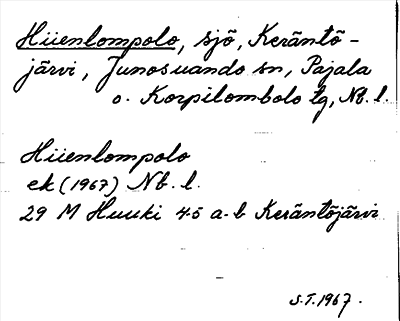 Hiienlompolo, sjö, Keräntö-
järvi, Junosuando sn, Pajala
o. Korpilombolo tg, Nb. l.
Hiienlompolo
ek (1967) Nb. l.
29 M Huuki 45 a-b Keräntöjärvi
S.T. 1967.